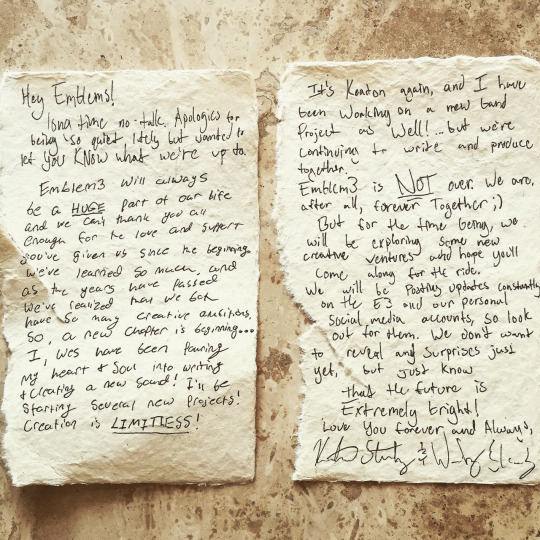 Hey Emblems!
long time no talk. Apologies for
being so quiet lately but wanted to
let you KNOW what we're up to.
Emblem3 will always
be a HUGE part of our life
and we can't thank you all
enough for the love and support
you've given us since the beginning.
We've learned so much, and
as the years have passed
we've realized that we both
have so many creative ambitions.
So, a new chapter is beginning...
I, Wes have been pouring
my heart & soul into writing
& creating a new sound! I'll be
starting several new projects!
Creation is LIMITLESS!
It's Keaton again, and I have
been working on a new band
project as well!...but we're
continuing to write and produce
together.
Emblem3 is NOT over. We are,
after all, forever together ;)
But for the time being, we
will be exploring some new
creative ventures and hope you'll
come along for the ride.
We will be posting updates constantly
on the E3 and our personal
social media accounts, so look
out for them. We don't want
to reveal any surprises just
yet, but just know
that the future is
Extremely bright!
Love you forever and Always,